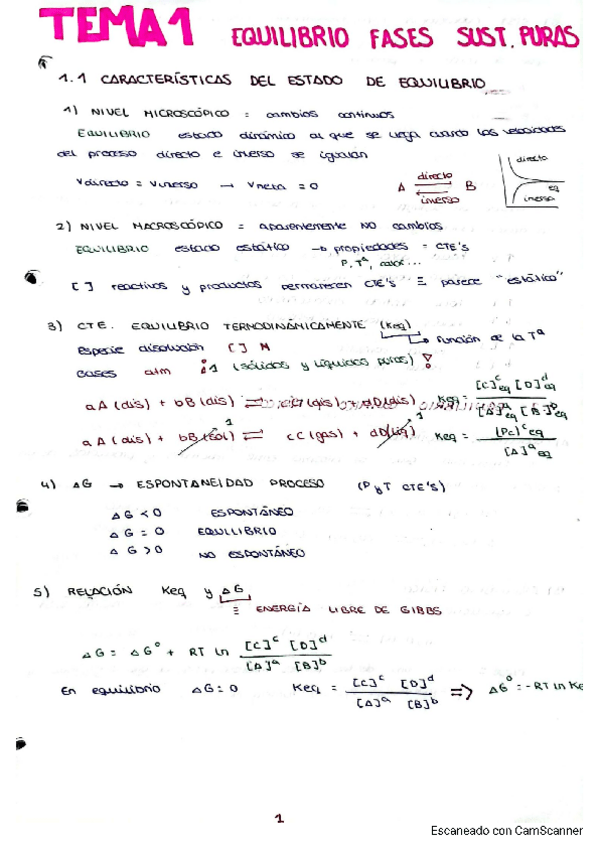 TEMA 1 EQUILIBRIO FASES SUST. PURAS
1.1 CARACTERÍSTICAS DEL ESTADO DE EQUILIBRIO
1) NIVEL MICROSCÓPICO = cambios continuos
EQUILIBRIO estado dinámico al que se llega cuando las velocidades
del proceso directo e inverso se igualan
Vdirecto = Vinverso → Vneta = 0
A directo ⇄ inverso B
directo
eq
inverso
2) NIVEL MACROSCÓPICO = aparentemente NO cambios
EQUILIBRIO estado estático → propiedades = CTE's
P, Tª, color...
[ ] reactivos y productos permanecen CTE's ≡ parece "estático"
3) CTE. EQUILIBRIO TERMODINÁMICAMENTE (Keq)
→ Función de la Tª
especie disolución [ ] M
gases atm ¡1 (sólidos y líquidos puros)!
aA (dis) + bB (dis) ⇄ (dis) + dD(dis) Keq = [C]^c eq [D]^d eq / [A]^a eq [B]^b eq
aA (dis) + bB (sol) 1 ⇄ cC (gas) + dD(líq) 1 Keq = (Pc)^c eq / [A]^a eq
4) ΔG → ESPONTANEIDAD PROCESO (P y T CTE's)
ΔG < 0 ESPONTÁNEO
ΔG = 0 EQUILIBRIO
ΔG > 0 NO ESPONTÁNEO
5) RELACIÓN Keq y ΔG
≡ ENERGÍA LIBRE DE GIBBS
ΔG = ΔG° + RT ln [C]^c [D]^d / [A]^a [B]^b
En equilibrio ΔG = 0 Keq = [C]^c [D]^d / [A]^a [B]^b => ΔG° = -RT ln Ke
1
Escaneado con CamScanner